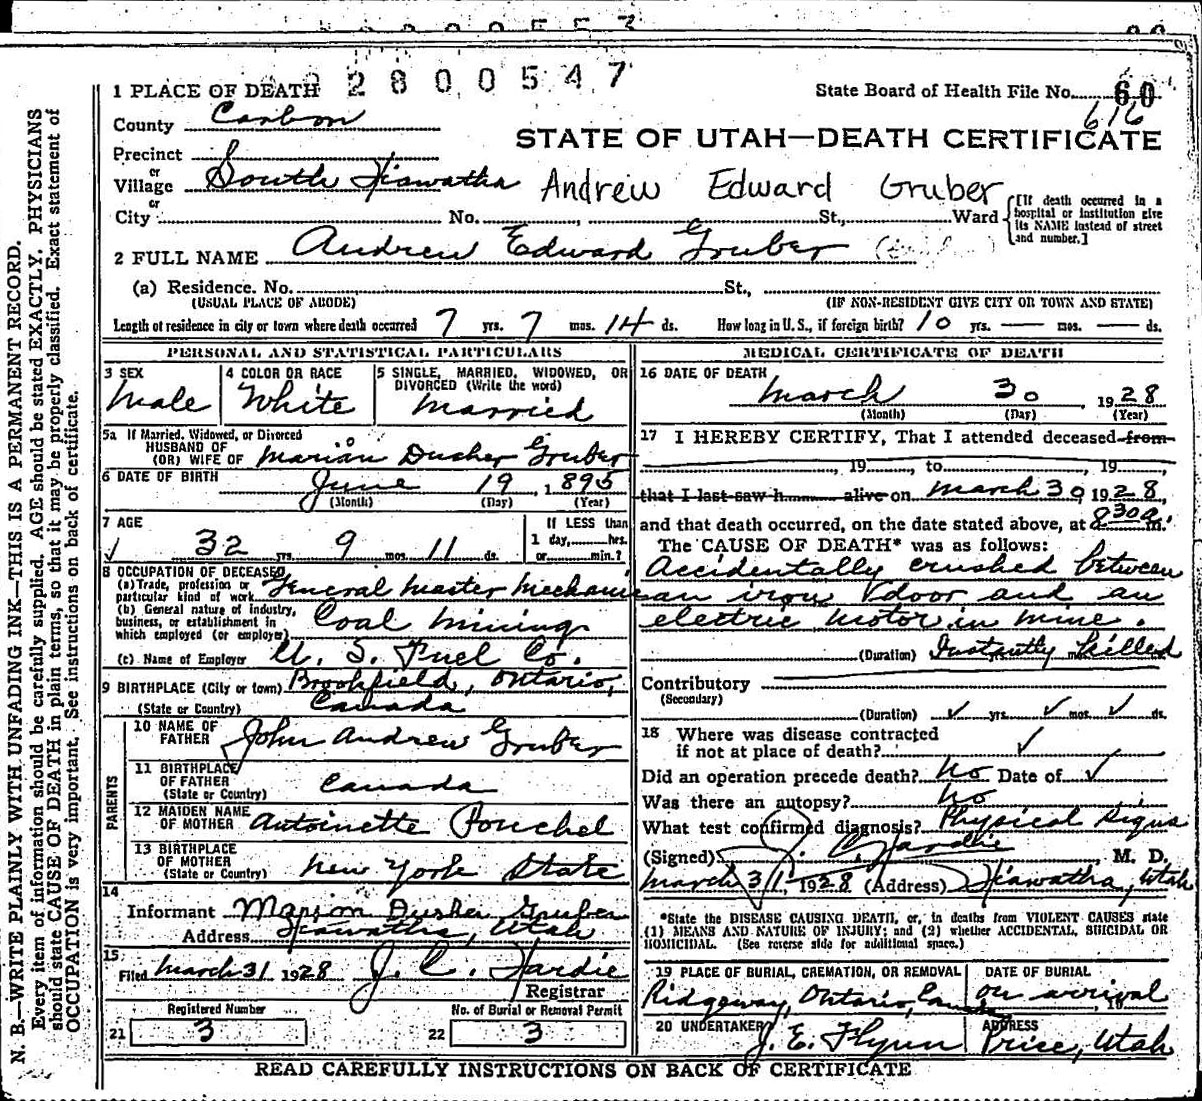 2800547
1 PLACE OF DEATH
State Board of Health File No. 60
616
County Carbon
STATE OF UTAH—DEATH CERTIFICATE
Precinct
or
Village South Hiawatha Andrew Edward Gruber
or
City No. St., Ward
[If death occurred in a hospital or institution give its NAME instead of street and number.]
2 FULL NAME Andrew Edward Gruber
(a) Residence. No. St.,
(USUAL PLACE OF ABODE) (IF NON-RESIDENT GIVE CITY OR TOWN AND STATE)
Length of residence in city or town where death occurred 7 yrs. 7 mos. 14 ds. How long in U. S., if foreign birth? 10 yrs. — mos. — ds.
PERSONAL AND STATISTICAL PARTICULARS
3 SEX
Male
4 COLOR OR RACE
White
5 SINGLE, MARRIED, WIDOWED, OR DIVORCED (Write the word)
Married
5a If Married, Widowed, or Divorced
HUSBAND OF
(OR) WIFE OF Marion Dusher Gruber
6 DATE OF BIRTH June 19, 1895
(Month) (Day) (Year)
7 AGE
32 yrs. 9 mos. 11 ds.
If LESS than
1 day, hrs.
or min.?
8 OCCUPATION OF DECEASED
(a) Trade, profession or
particular kind of work General Master Mechanic
(b) General nature of industry,
business, or establishment in
which employed (or employer) Coal Mining
(c) Name of Employer U. S. Fuel Co.
9 BIRTHPLACE (City or town) Brookfield, Ontario,
(State or Country) Canada
PARENTS
10 NAME OF
FATHER John Andrew Gruber
11 BIRTHPLACE
OF FATHER
(State or Country) Canada
12 MAIDEN NAME
OF MOTHER Antoinette Pouchel
13 BIRTHPLACE
OF MOTHER
(State or Country) New York State
14
Informant Marion Dusher Gruber
Address Hiawatha, Utah
15
Filed March 31 1928 J. C. Hardie
Registrar
Registered Number
21 3
No. of Burial or Removal Permit
22 3
MEDICAL CERTIFICATE OF DEATH
16 DATE OF DEATH
March 30 1928
(Month) (Day) (Year)
17 I HEREBY CERTIFY, That I attended deceased from
, 19 , to , 19
that I last saw h alive on March 30 1928,
and that death occurred, on the date stated above, at 8 30 a m.
The CAUSE OF DEATH* was as follows:
Accidentally crushed between
an iron door and an
electric motor in mine.
(Duration) yrs. mos. Instantly killed
Contributory
(Secondary)
(Duration) yrs. mos. ds.
18 Where was disease contracted
if not at place of death?
Did an operation precede death? No Date of
Was there an autopsy? No
What test confirmed diagnosis? Physical Signs
(Signed) J. C. Hardie, M. D.
March 31, 1928 (Address) Hiawatha, Utah
*State the DISEASE CAUSING DEATH, or, in deaths from VIOLENT CAUSES state
(1) MEANS AND NATURE OF INJURY; and (2) whether ACCIDENTAL, SUICIDAL OR
HOMICIDAL. (See reverse side for additional space.)
19 PLACE OF BURIAL, CREMATION, OR REMOVAL
Ridgeway, Ontario,
DATE OF BURIAL
on arrival, 19
20 UNDERTAKER
J. E. Flynn
ADDRESS
Price, Utah
READ CAREFULLY INSTRUCTIONS ON BACK OF CERTIFICATE
N. B.—WRITE PLAINLY WITH UNFADING INK—THIS IS A PERMANENT RECORD.
Every item of information should be carefully supplied. AGE should be stated EXACTLY. PHYSICIANS
should state CAUSE OF DEATH in plain terms, so that it may be properly classified. Exact statement of
OCCUPATION is very important. See instructions on back of certificate.